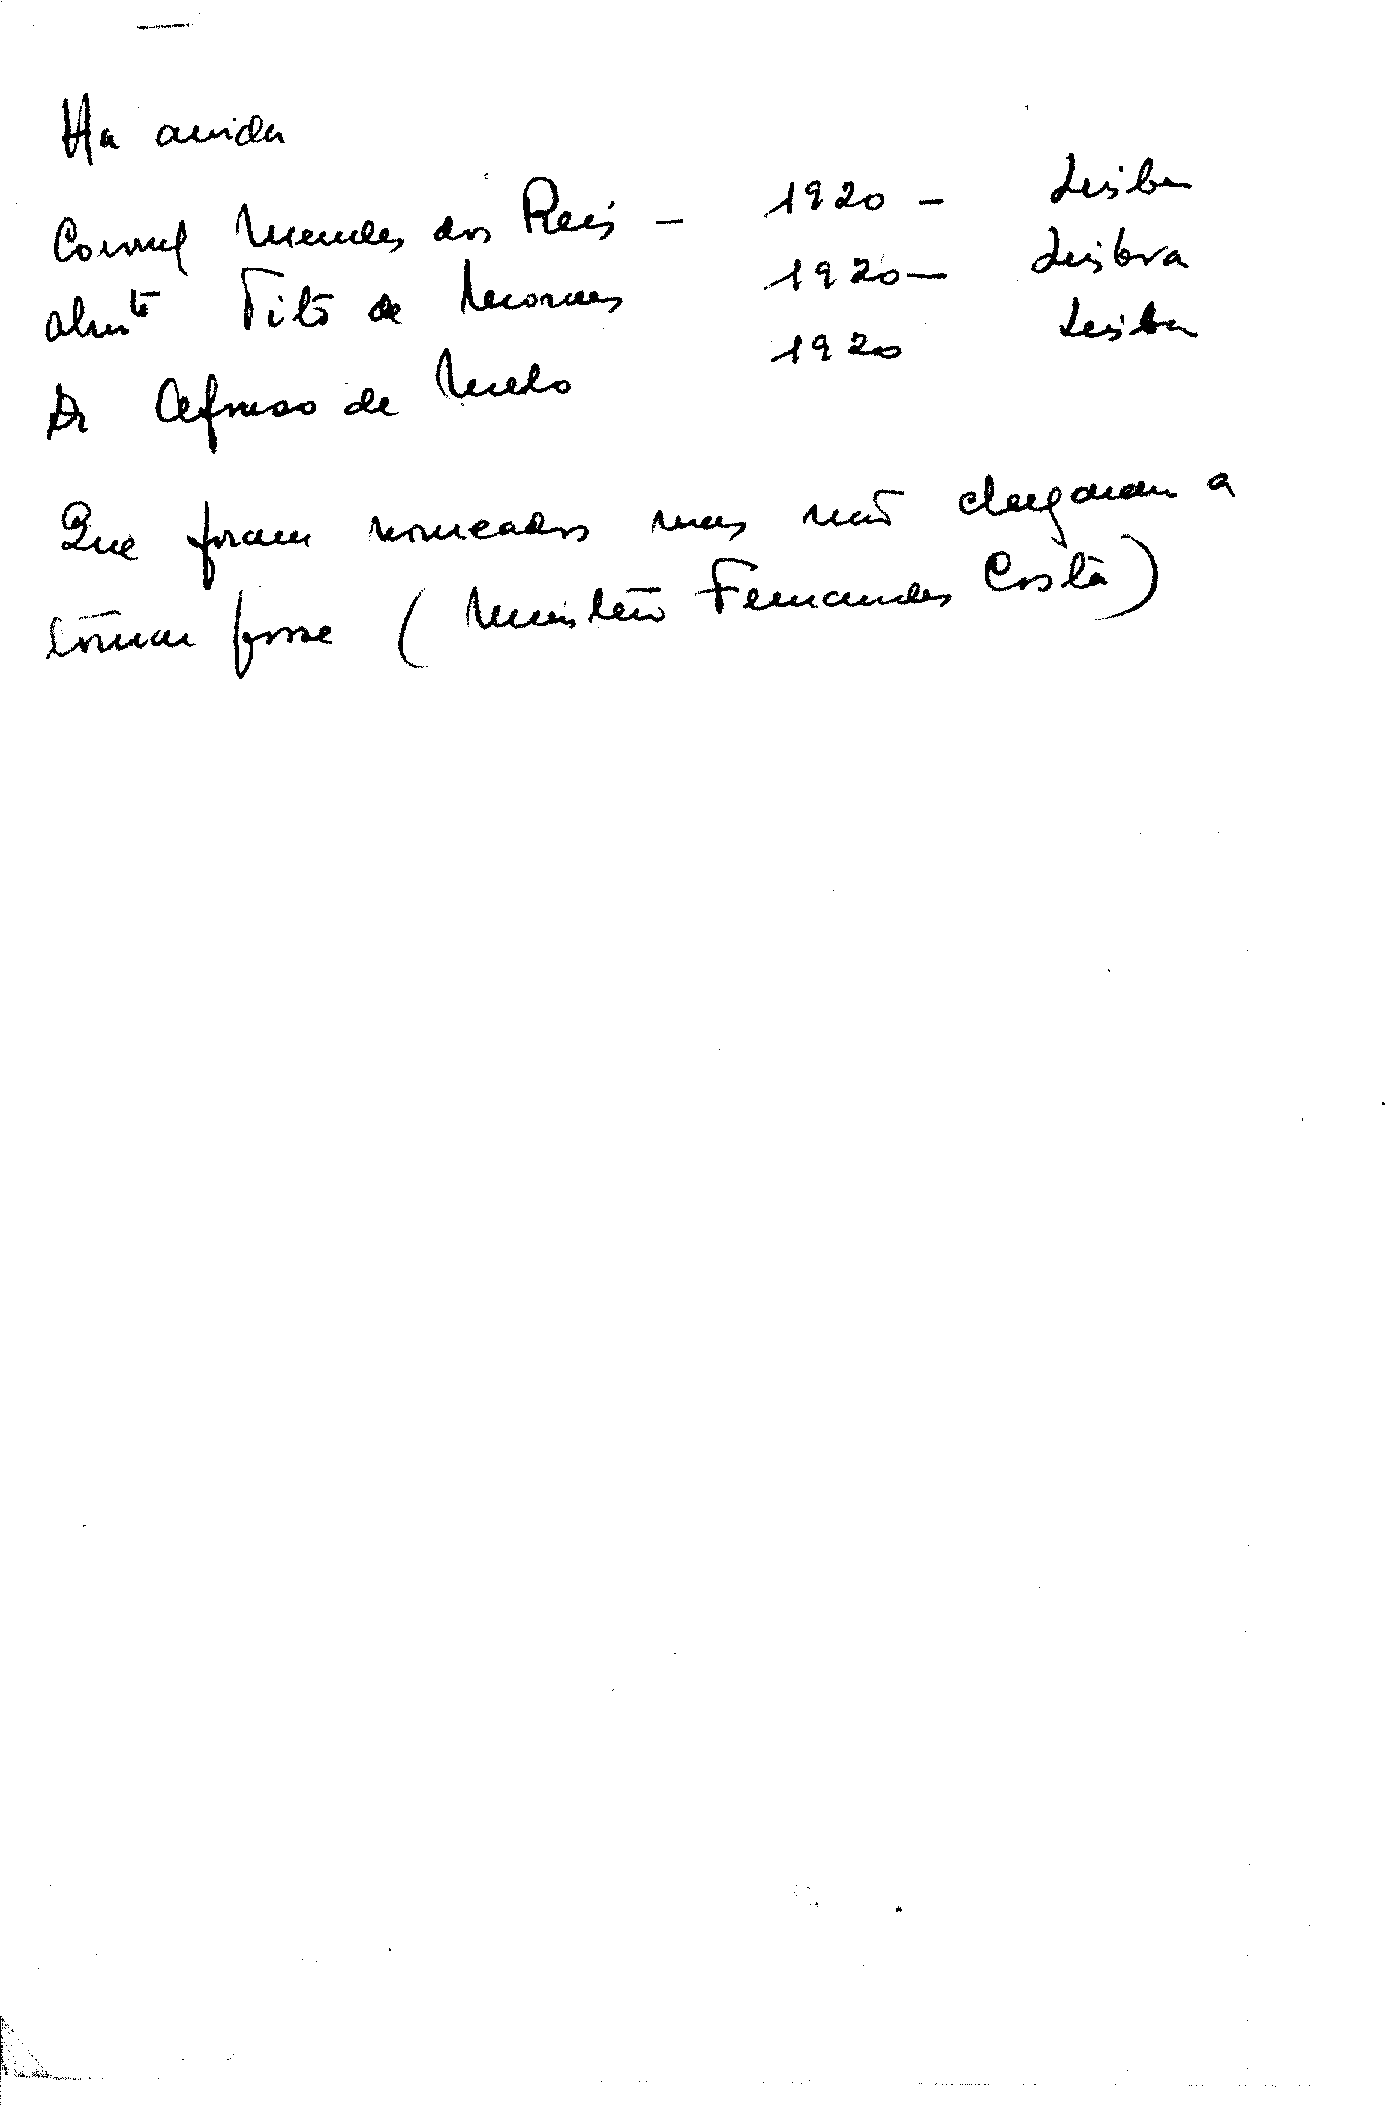 Ha ainda
Coronel Mendes dos Reis - 1920 - Lisboa
Almte Tito de Moraes 1920 - Lisboa
Dr Afonso de Melo 1920 Lisboa
Que foram nomeados mas não chegaram a
tomar posse (Ministério Fernandes Costa)